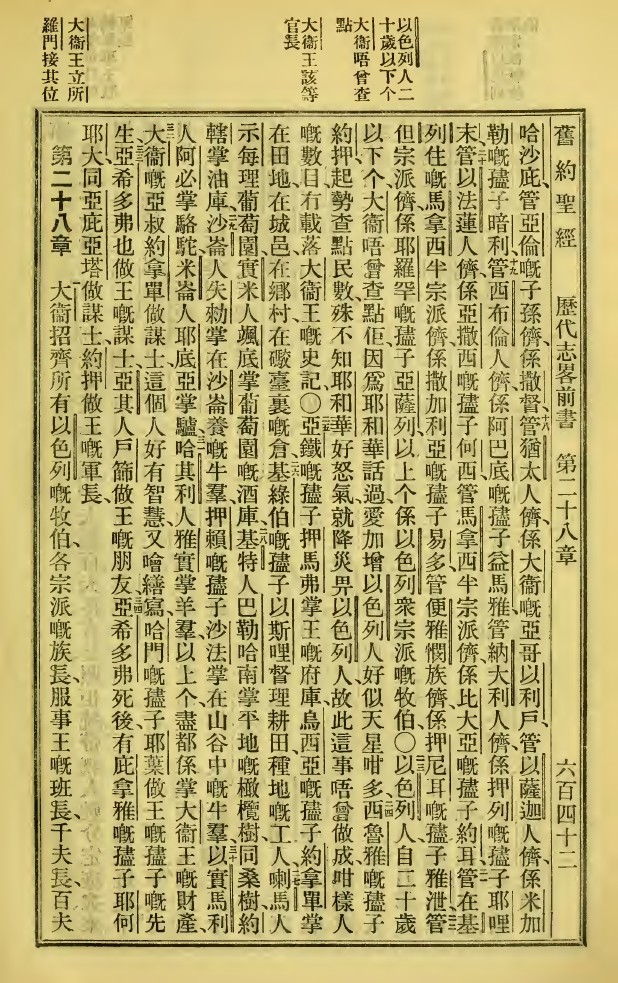 以色列人二
十歲以下个
大衞唔曾查
點
大衞王該等
官長
大衞王立所
羅門接其位
舊約聖經 歷代志畧前書 第二十八章 六百四十二
哈沙庇管亞倫嘅子孫儕係撒督管猶太人儕係大衞嘅亞哥以利戶管以薩迦人儕係米加
勒嘅孻子暗利管西布倫人儕係阿巴底嘅孻子益馬雅管納大利人儕係押列嘅孻子耶哩
末管以法蓮人儕係亞撒西嘅孻子何西管馬拿西半宗派儕係比大亞嘅孻子約耳管在基
列住嘅馬拿西半宗派儕係撒加利亞嘅孻子易多管便雅憫族儕係押尼耳嘅孻子雅泄管
但宗派儕係耶羅罕嘅孻子亞薩列以上个係以色列衆宗派嘅牧伯〇以色列人自二十歲
以下个大衞唔曾查點佢因爲耶和華話過愛加增以色列人好似天星咁多西魯雅嘅孻子
約押起勢查點民數殊不知耶和華好怒氣就降災畀以色列人故此這事唔曾做成咁樣人
嘅數目冇載落大衞王嘅史記〇亞鐵嘅孻子押馬弗掌王嘅府庫烏西亞嘅孻子約拿單掌
在田地在城邑在鄉村在礮臺裏嘅倉基綠伯嘅孻子以斯哩督理耕田種地嘅工人喇馬人
示每理葡萄園實米人颯底掌葡萄園嘅酒庫基特人巴勒哈南掌平地嘅橄欖樹同桑樹約
轄掌油庫沙崙人失勑掌在沙崙養嘅牛羣押賴嘅孻子沙法掌在山谷中嘅牛羣以實馬利
人阿必掌駱駝米崙人耶底亞掌驢哈其利人雅實掌羊羣以上个盡都係掌大衞王嘅財產
大衞嘅亞叔約拿單做謀士這個人好有智慧又噲繕寫哈門嘅孻子耶葉做王嘅孻子嘅先
生亞希多弗也做王嘅謀士亞其人戶篩做王嘅朋友亞希多弗死後有庇拿雅嘅孻子耶何
耶大同亞庇亞塔做謀士約押做王嘅軍長
第二十八章 大衞招齊所有以色列嘅牧伯各宗派嘅族長服事王嘅班長千夫長百夫